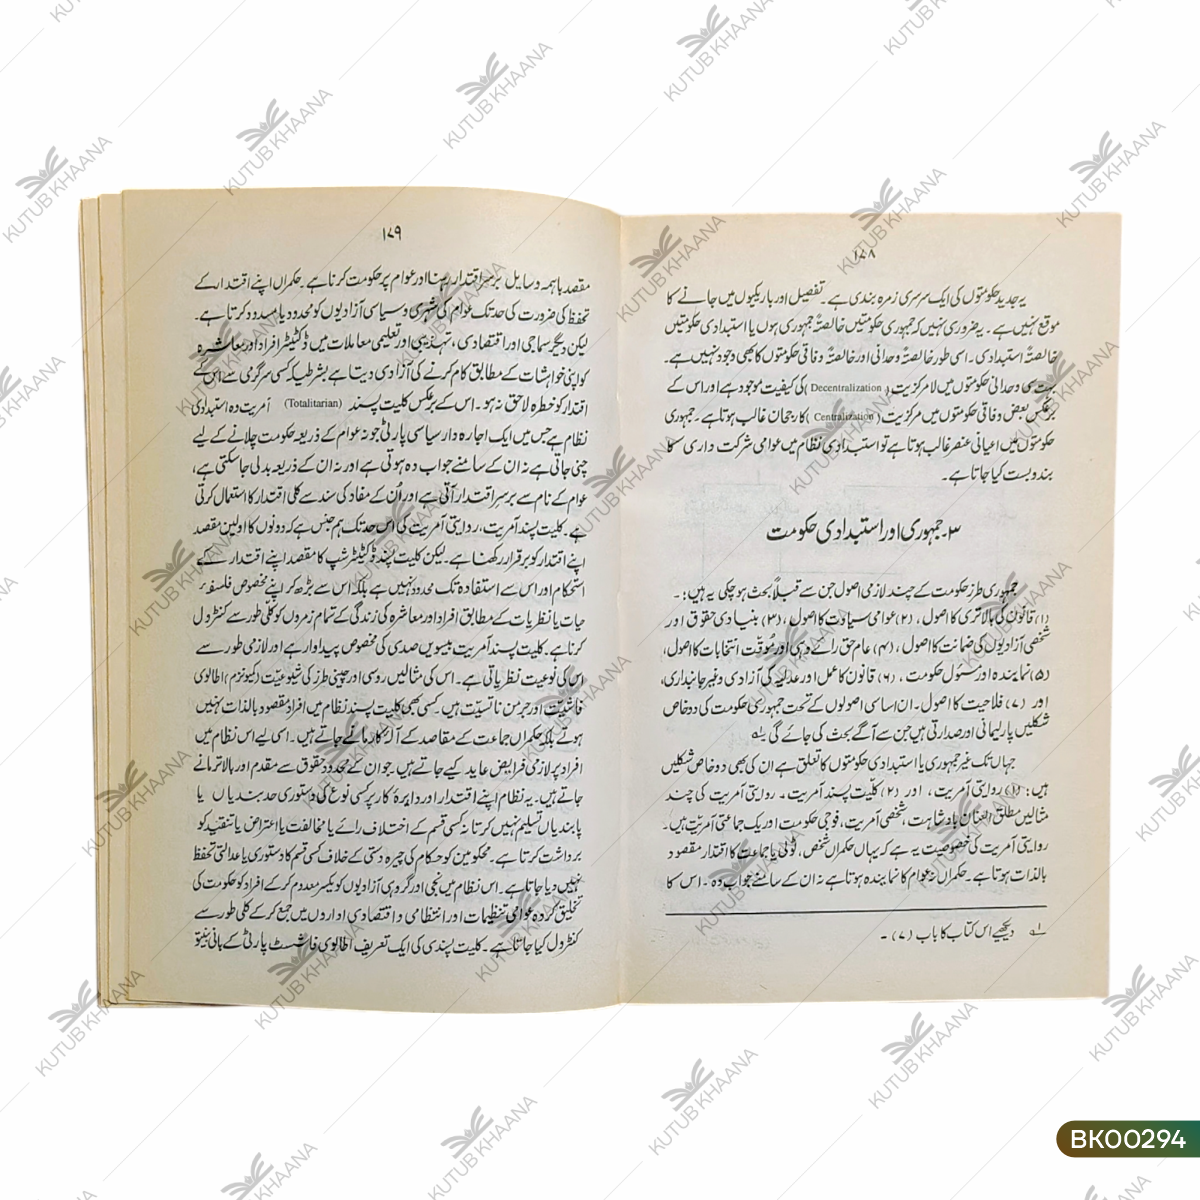 ۱۷۸
یہ جدید حکومتوں کی ایک سرسری زمرہ بندی ہے۔ تفصیل اور باریکیوں میں جانے کا
موقع نہیں ہے۔ یہ ضروری نہیں کہ جمہوری حکومتیں خالصتہً جمہوری ہوں یا استبدادی حکومتیں
خالصتہً استبدادی۔ اسی طور خالصتہً وحدانی اور خالصتہً وفاقی حکومتوں کا بھی وجود نہیں ہے۔
بہت سی وحدانی حکومتوں میں لامرکزیت (Decentralization) کی کیفیت موجود ہے اور اس کے
برعکس بعض وفاقی حکومتوں میں مرکزیت (Centralization) کا رجحان غالب ہوتا ہے۔ جمہوری
حکومتوں میں اعیانی عنصر غالب ہوتا ہے تو استبدادی نظام میں عوامی شرکت داری کا
بندوبست کیا جاتا ہے۔
۳۔ جمہوری اور استبدادی حکومت
جمہوری طرز حکومت کے چند لازمی اصول جن سے قبلاً بحث ہو چکی یہ ہیں:۔
(۱) قانون کی بالاتری کا اصول، (۲) عوامی سیادت کا اصول، (۳) بنیادی حقوق اور
شخصی آزادیوں کی ضمانت کا اصول، (۴) عام حق رائے دہی اور مُوقّت انتخابات کا اصول،
(۵) نمایندہ اور مسئول حکومت، (۶) قانون کا عمل اور عدلیہ کی آزادی و غیر جانبداری،
اور (۷) فلاحیت کا اصول۔ ان اساسی اصولوں کے تحت جمہوری حکومت کی دو خاص
شکلیں پارلیمانی اور صدارتی ہیں جن سے آگے بحث کی جائے گی۔ ؂۱
جہاں تک غیر جمہوری یا استبدادی حکومتوں کا تعلق ہے ان کی بھی دو خاص شکلیں
ہیں: (۱) روایتی آمریت، اور (۲) کلیّت پسند آمریت۔ روایتی آمریت کی چند
مثالیں مطلق العنان بادشاہت، شخصی آمریت، فوجی حکومت اور یک جماعتی آمریّت ہیں۔
روایتی آمریت کی خصوصیت یہ ہے کہ یہاں حکمراں شخص، ٹولی یا جماعت کا اقتدار مقصود
بالذات ہوتا ہے۔ حکمراں نہ عوام کا نمایندہ ہوتا ہے نہ ان کے سامنے جواب دہ۔ اس کا
؂۱ دیکھیے اس کتاب کا باب (۷)۔
۱۷۹
مقصد باہمہ وسایل برسراقتدار رہنا اور عوام پر حکومت کرنا ہے۔ حکمراں اپنے اقتدار کے
تحفظ کی ضرورت کی حد تک عوام کی شہری و سیاسی آزادیوں کو محدود یا مسدود کرتا ہے۔
لیکن دیگر سماجی اور اقتصادی، تہذیبی اور تعلیمی معاملات میں ڈکٹیٹر افراد اور معاشرہ
کو اپنی خواہشات کے مطابق کام کرنے کی آزادی دیتا ہے بشرطیکہ کسی سرگرمی سے اس کے
اقتدار کو خطرہ لاحق نہ ہو۔ اس کے برعکس کلیت پسند (Totalitarian) آمریت وہ استبدادی
نظام ہے جس میں ایک اجارہ دار سیاسی پارٹی جو نہ عوام کے ذریعہ حکومت چلانے کے لیے
چنی جاتی ہے نہ ان کے سامنے جواب دہ ہوتی ہے اور نہ ان کے ذریعہ بدلی جاسکتی ہے،
عوام کے نام سے برسراقتدار آتی ہے اور اُن کے مفاد کی سند سے کلی اقتدار کا استعمال کرتی
ہے۔ کلیت پسند آمریت، روایتی آمریت کی اس حد تک ہم جنس ہے کہ دونوں کا اولین مقصد
اپنے اقتدار کو برقرار رکھنا ہے۔ لیکن کلیت پسند ڈکٹیٹرشپ کا مقصد اپنے اقتدار کے
استحکام اور اس سے استفادہ تک محدود نہیں ہے بلکہ اس سے بڑھ کر اپنے مخصوص فلسفۂ
حیات یا نظریات کے مطابق افراد اور معاشرہ کی زندگی کے تمام زمروں کو کلی طور سے کنٹرول
کرنا ہے۔ کلیت پسند آمریت بیسویں صدی کی مخصوص پیداوار ہے اور لازمی طور سے
اس کی نوعیت نظریاتی ہے۔ اس کی مثالیں روسی اور چینی طرز کی شیوعیت (کمیونزم) اطالوی
فاشیت اور جرمن نانسیت ہیں۔ کسی بھی کلیت پسند نظام میں افراد مقصود بالذات نہیں
ہوتے بلکہ حکمراں جماعت کے مقاصد کے آلۂ کار مانے جاتے ہیں۔ اسی لیے اس نظام میں
افراد پر لازمی فرایض عاید کیے جاتے ہیں۔ جو ان کے محدود حقوق سے مقدم اور بالاتر مانے
جاتے ہیں۔ یہ نظام اپنے اقتدار اور دایرۂ کار پر کسی نوع کی دستوری حدبندیاں یا
پابندیاں تسلیم نہیں کرتا نہ کسی قسم کے اختلاف رائے یا مخالفت یا اعتراض یا تنقید کو
برداشت کرتا ہے۔ محکومین کو حکام کی چیرہ دستی کے خلاف کسی قسم کا دستوری یا عدالتی تحفظ
نہیں دیا جاتا ہے۔ اس نظام میں نجی اور گروہی آزادیوں کو یکسر معدوم کرکے افراد کو حکومت کی
تخلیق کردہ عوامی تنظیمات اور انتظامی و اقتصادی اداروں میں جمع کرکے کلی طور سے
کنٹرول کیا جاتا ہے۔ کلیت پسندی کی ایک تعریف اطالوی فاشسٹ پارٹی کے بانی بینیتو
KUTUB KHAANA
BK00294